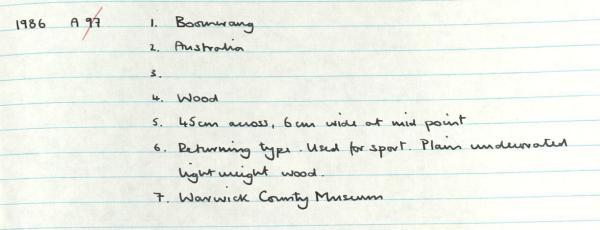 1986 A 97 1. Boomerang
2. Australia
3.
4. Wood
5. 45cm across, 6cm wide at mid point
6. Returning type. Used for sport. Plain undecorated
light weight wood.
7. Warwick County Museum